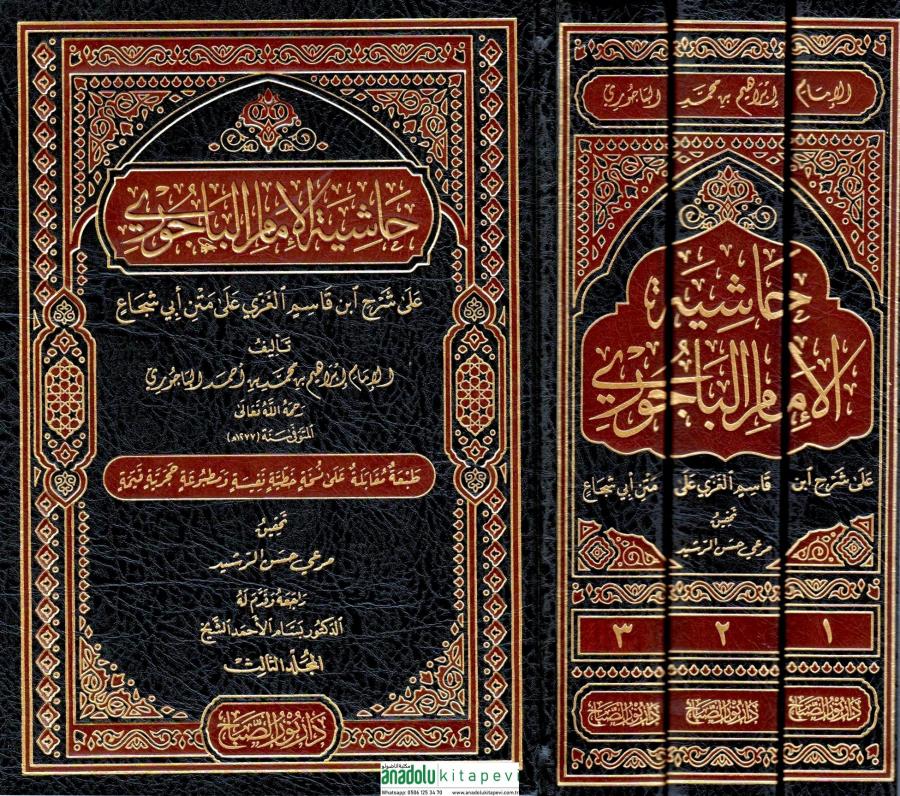 حاشية الإمام الباجوري
على شرح ابن قاسم الغزي على متن أبي شجاع
تأليف
الإمام إبراهيم بن محمد بن أحمد الباجوري
رحمه الله تعالى
المتوفى سنة (١٢٧٧ه)
طبعة مقابلة على نسخة خطية نفيسة ومطبوعة حجرية قيمة
تحقيق
مرعي حسن الرشيد
راجعه وقدم له
الدكتور بسام الأحمد الشيخ
المجلد الثالث
دار نور الصباح
الإمام إبراهيم بن محمد الباجوري
حاشية
الإمام الباجوري
على شرح ابن قاسم الغزي على متن أبي شجاع
تحقيق
مرعي حسن الرشيد
١ ٢ ٣
دار نور الصباح دار نور الصباح دار نور الصباح
مكتبة اناضولو
anadolukitapevi
Whatsapp: 0506 125 34 70 www.anadolukitapevi.com.tr